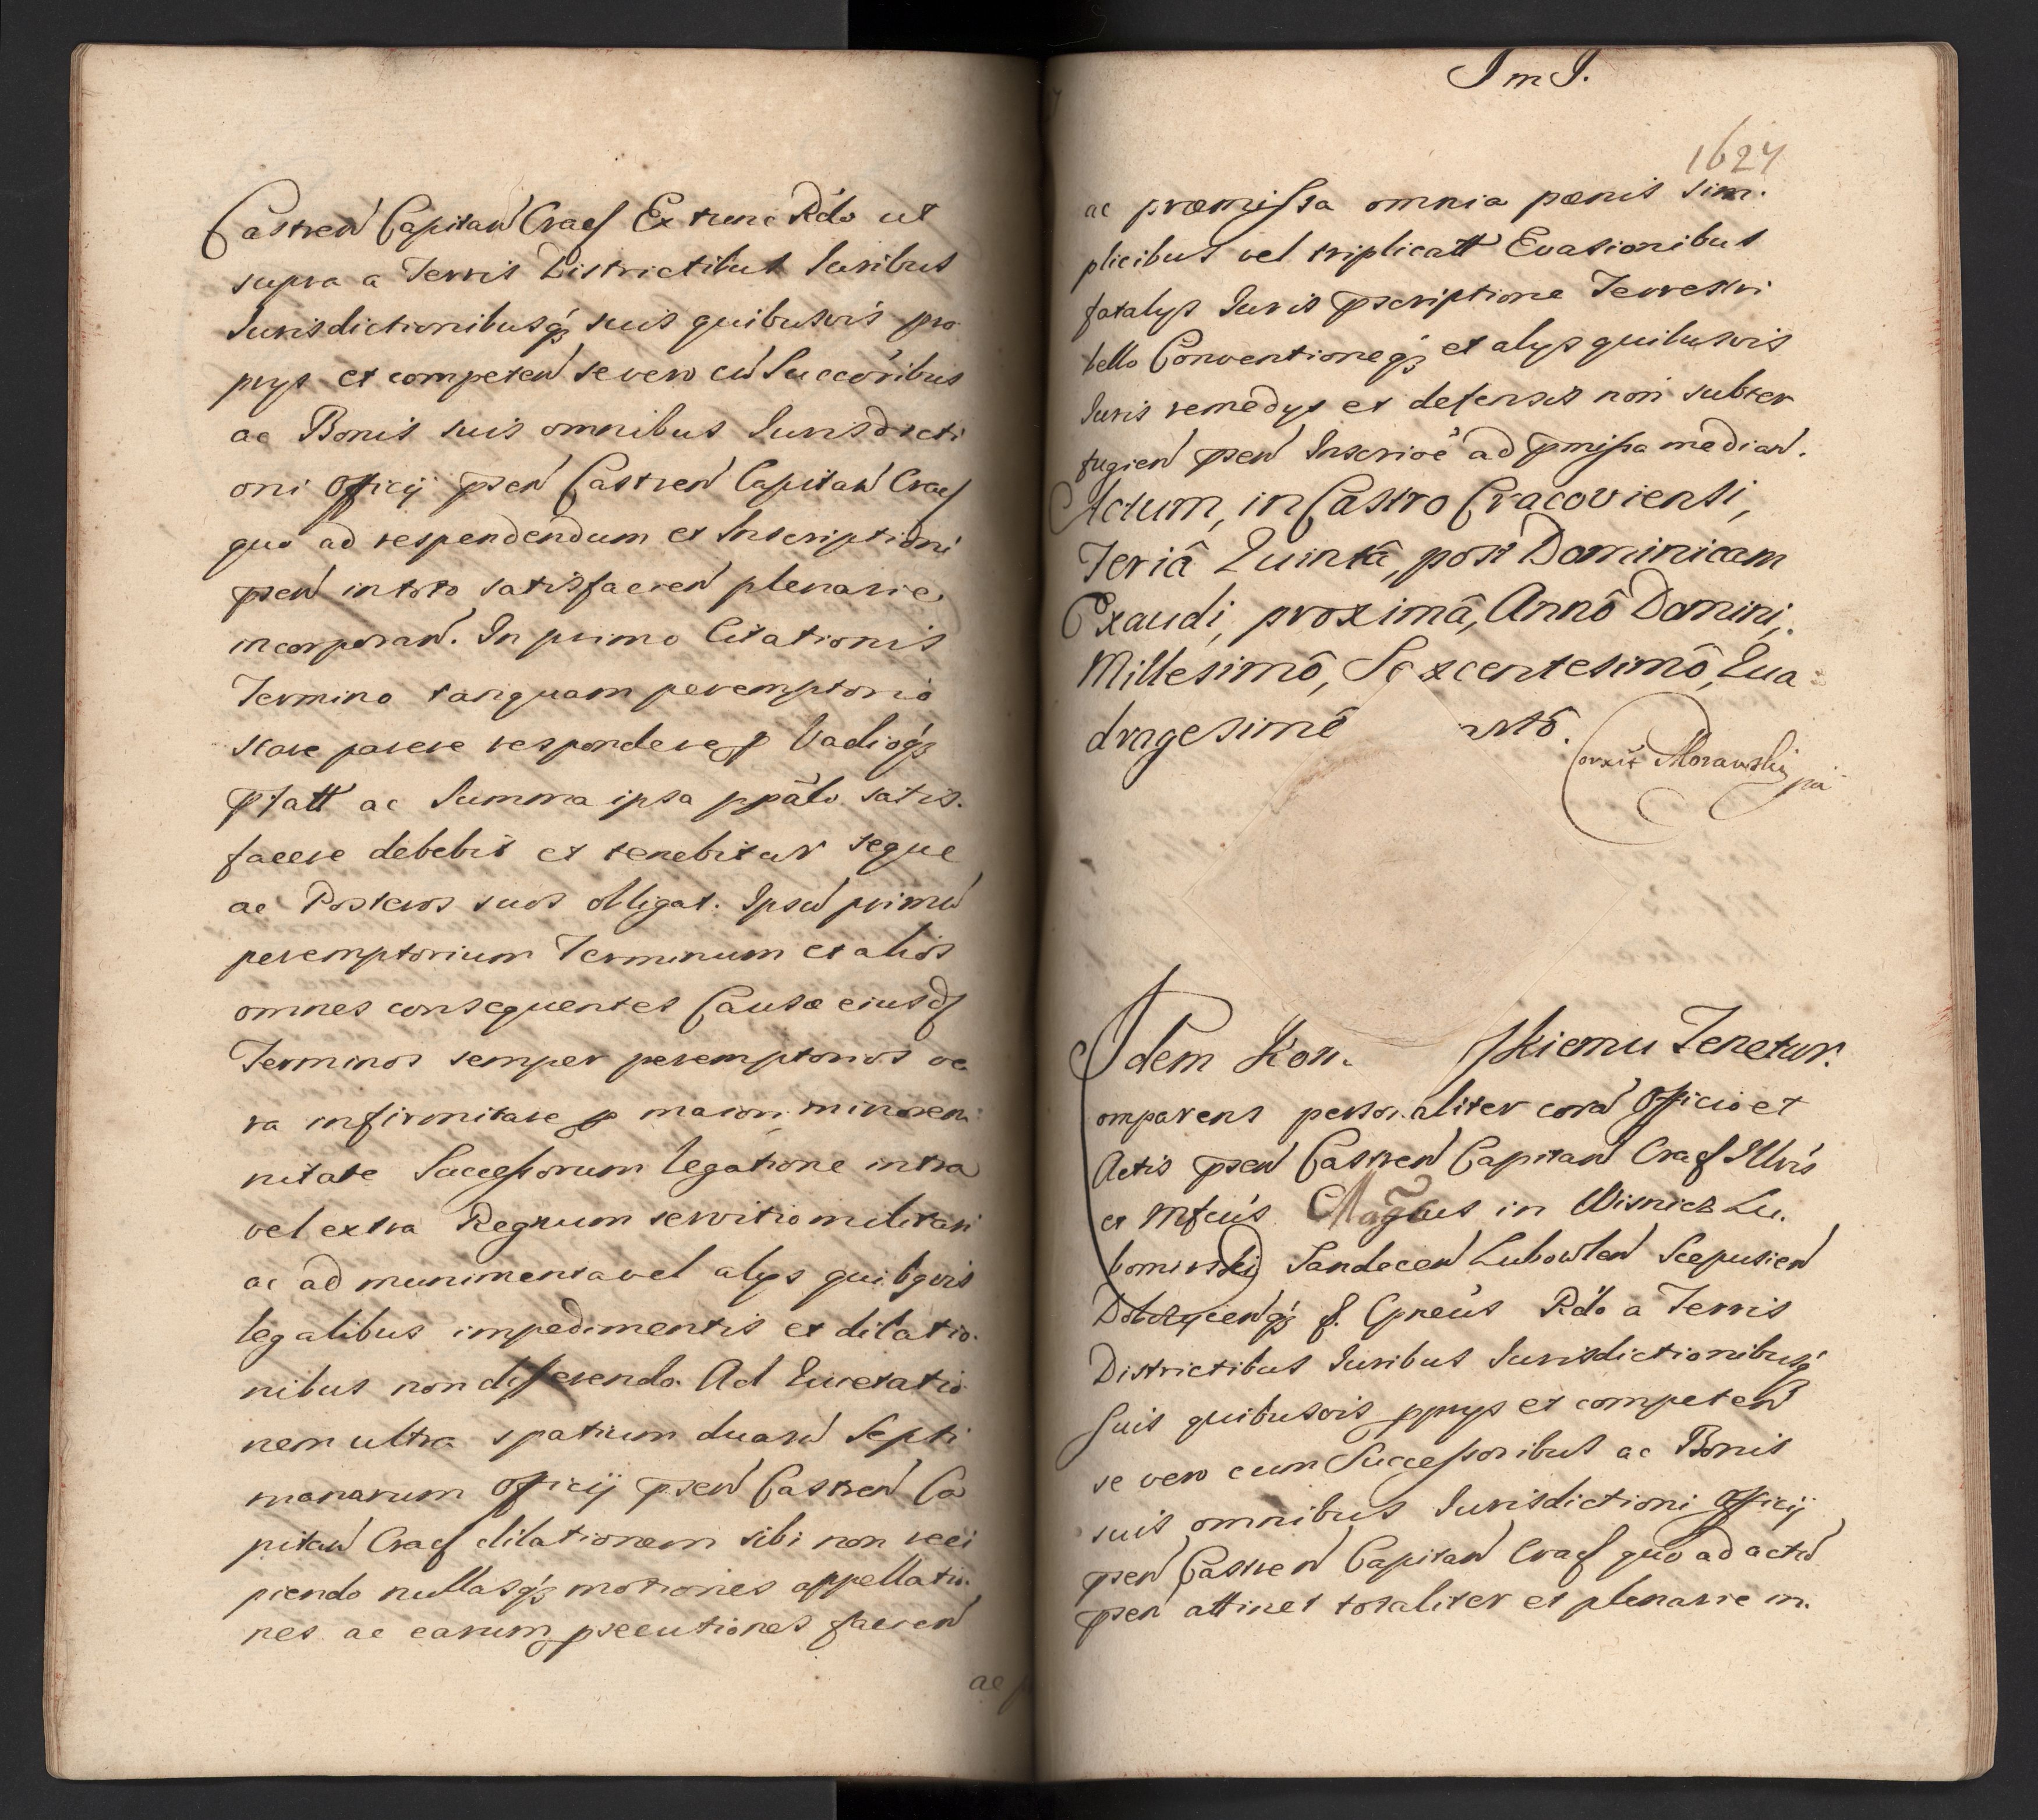 Castren Capitan Crac Ex tunc Rdo ut
supra a Terris Districtibus Iuribus
Iurisdictionibusq3 suis quibusvis pro
prys et competen se vero cu Succoribus
ac Bonis suis omnibus Iurisdicti
oni Officij psen Castren Capitan Crac
quo ad respondendum et Inscriptioni
psen in toto satisfacien plenarie
incorporan. In primo Citationis
Termino tanquam peremptorio
stare parere respondere p Vadioq3
pfatt ac Summa ipsa ppali satis.
facere debebit et tenebitur seque
ac Posteros suos obligat. Ipsu primu
peremptorium Terminum et alios
omnes consequentes Causæ eiusd
Terminos semper peremptorios ve
ra infirmitate p maiori minoren
nitate Successorum legatione intra
vel extra Regnum servitio militari
ac ad munimenta vel alys quibqvis
legalibus impedimentis et dilatio.
nibus non defferendo. Ad Evictatio
nem ultra spatium duaru Septi
manarum Officij psen Castren Ca
pitan Crac dilationem sibi non reci
piendo nullasq3 motiones appellatio.
nes ac earum psecutiones facien
ac p
ImI.
1624
ac præmissa omnia pœnis sim.
plicibus vel triplicatt Evasionibus
fatalys Iuris pscriptione Terrestri
bello Conventioneq3 et alys quibusvis
Iuris remedys et defensis non subter
fugien psen Inscrioe ad pmissa median.
Actum, in Castro Cracoviensi,
Feriâ Quintâ, post Dominicam
Exaudi, proximâ, Annô Domini,
Millesimô, Sexcentesimô, Qua
dragesimô ntô.
Corxit Morawski pa
Idem Kon. skiemu Tenetur.
omparens personaliter cora Officio et
Actis psen Castren Capitan Crac Illris
et Mfcus Comes in Wisnicz Lu.
bomirski Sandecen Lubowlen Scepusien
Dobczycenq3 p. Gneus Rdo a Terris
Districtibus Iuribus Iurisdictionibusq
Suis quibusvis pprys et competen
se vero cum Successoribus ac Bonis
suis omnibus Iurisdictioni Officij
psen Castren Capitan Crac quo ad actu
psen attinet totaliter et plenarie in.